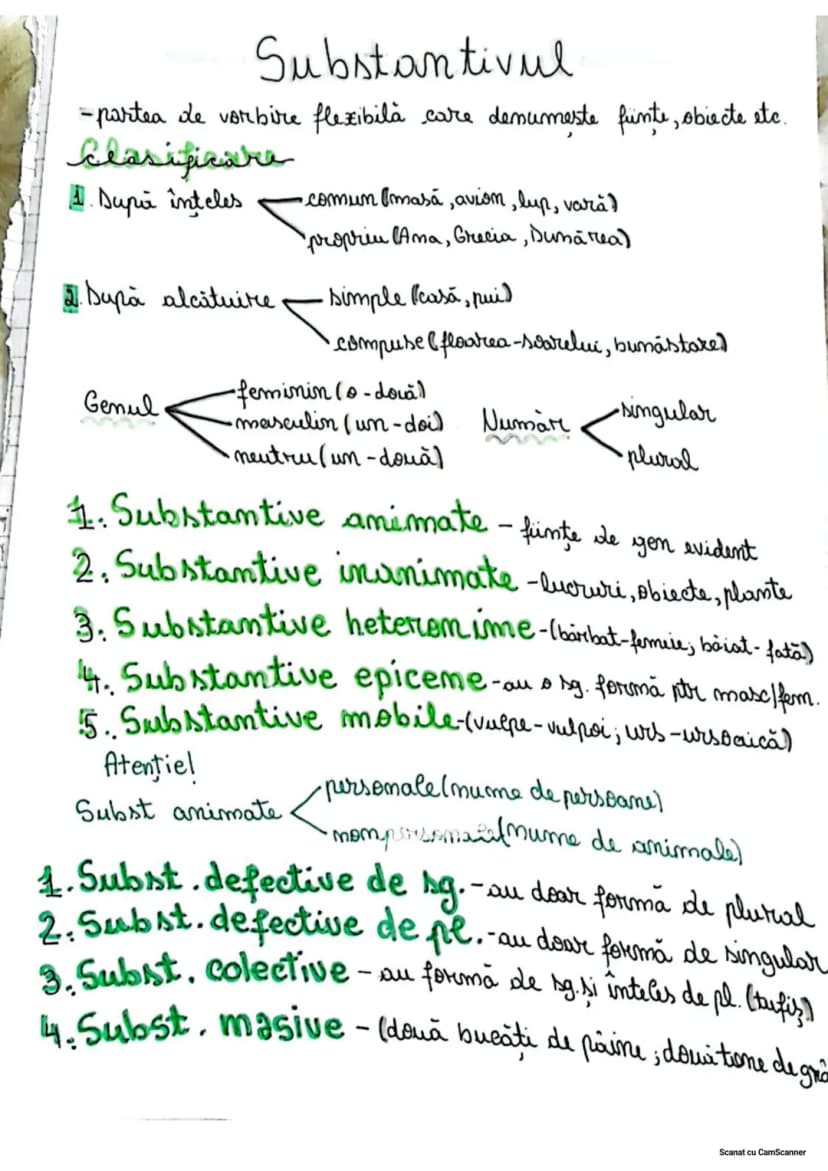 Substantivul
-partea de vorbire flexibilă care denumește ființe, obiecte etc.
Clasificare
1. După înțeles
comun (masă, avion, lup, vară)
propriu (Ana, Grecia, Dunărea)
2. După alcătuire
simple (casă, pui)
compuse (floarea-soarelui, bunăstare)
Genul
feminin (o - două)
masculin (un - doi)
neutru (un - două)
Număr
singular
plural
1. Substantive animate - ființe de gen evident
2. Substantive inanimate - lucruri, obiecte, plante
3. Substantive heteronime - (bărbat-femeie; băiat - fată)
4. Substantive epicene - au o sg. formă ptr masc/fem.
5. Substantive mobile - (vulpe - vulpoi; urs - ursoaică)
Atenție!
Subst animate
personale (nume de persoane)
nonpersonale (nume de animale)
1. Subst. defective de sg. - au doar formă de plural
2. Subst. defective de pl. - au doar formă de singular
3. Subst. colective - au formă de sg. și înțeles de pl. (tufiș)
4. Subst. masive - (două bucăți de pâine; două tone de
Scanat cu CamScanner